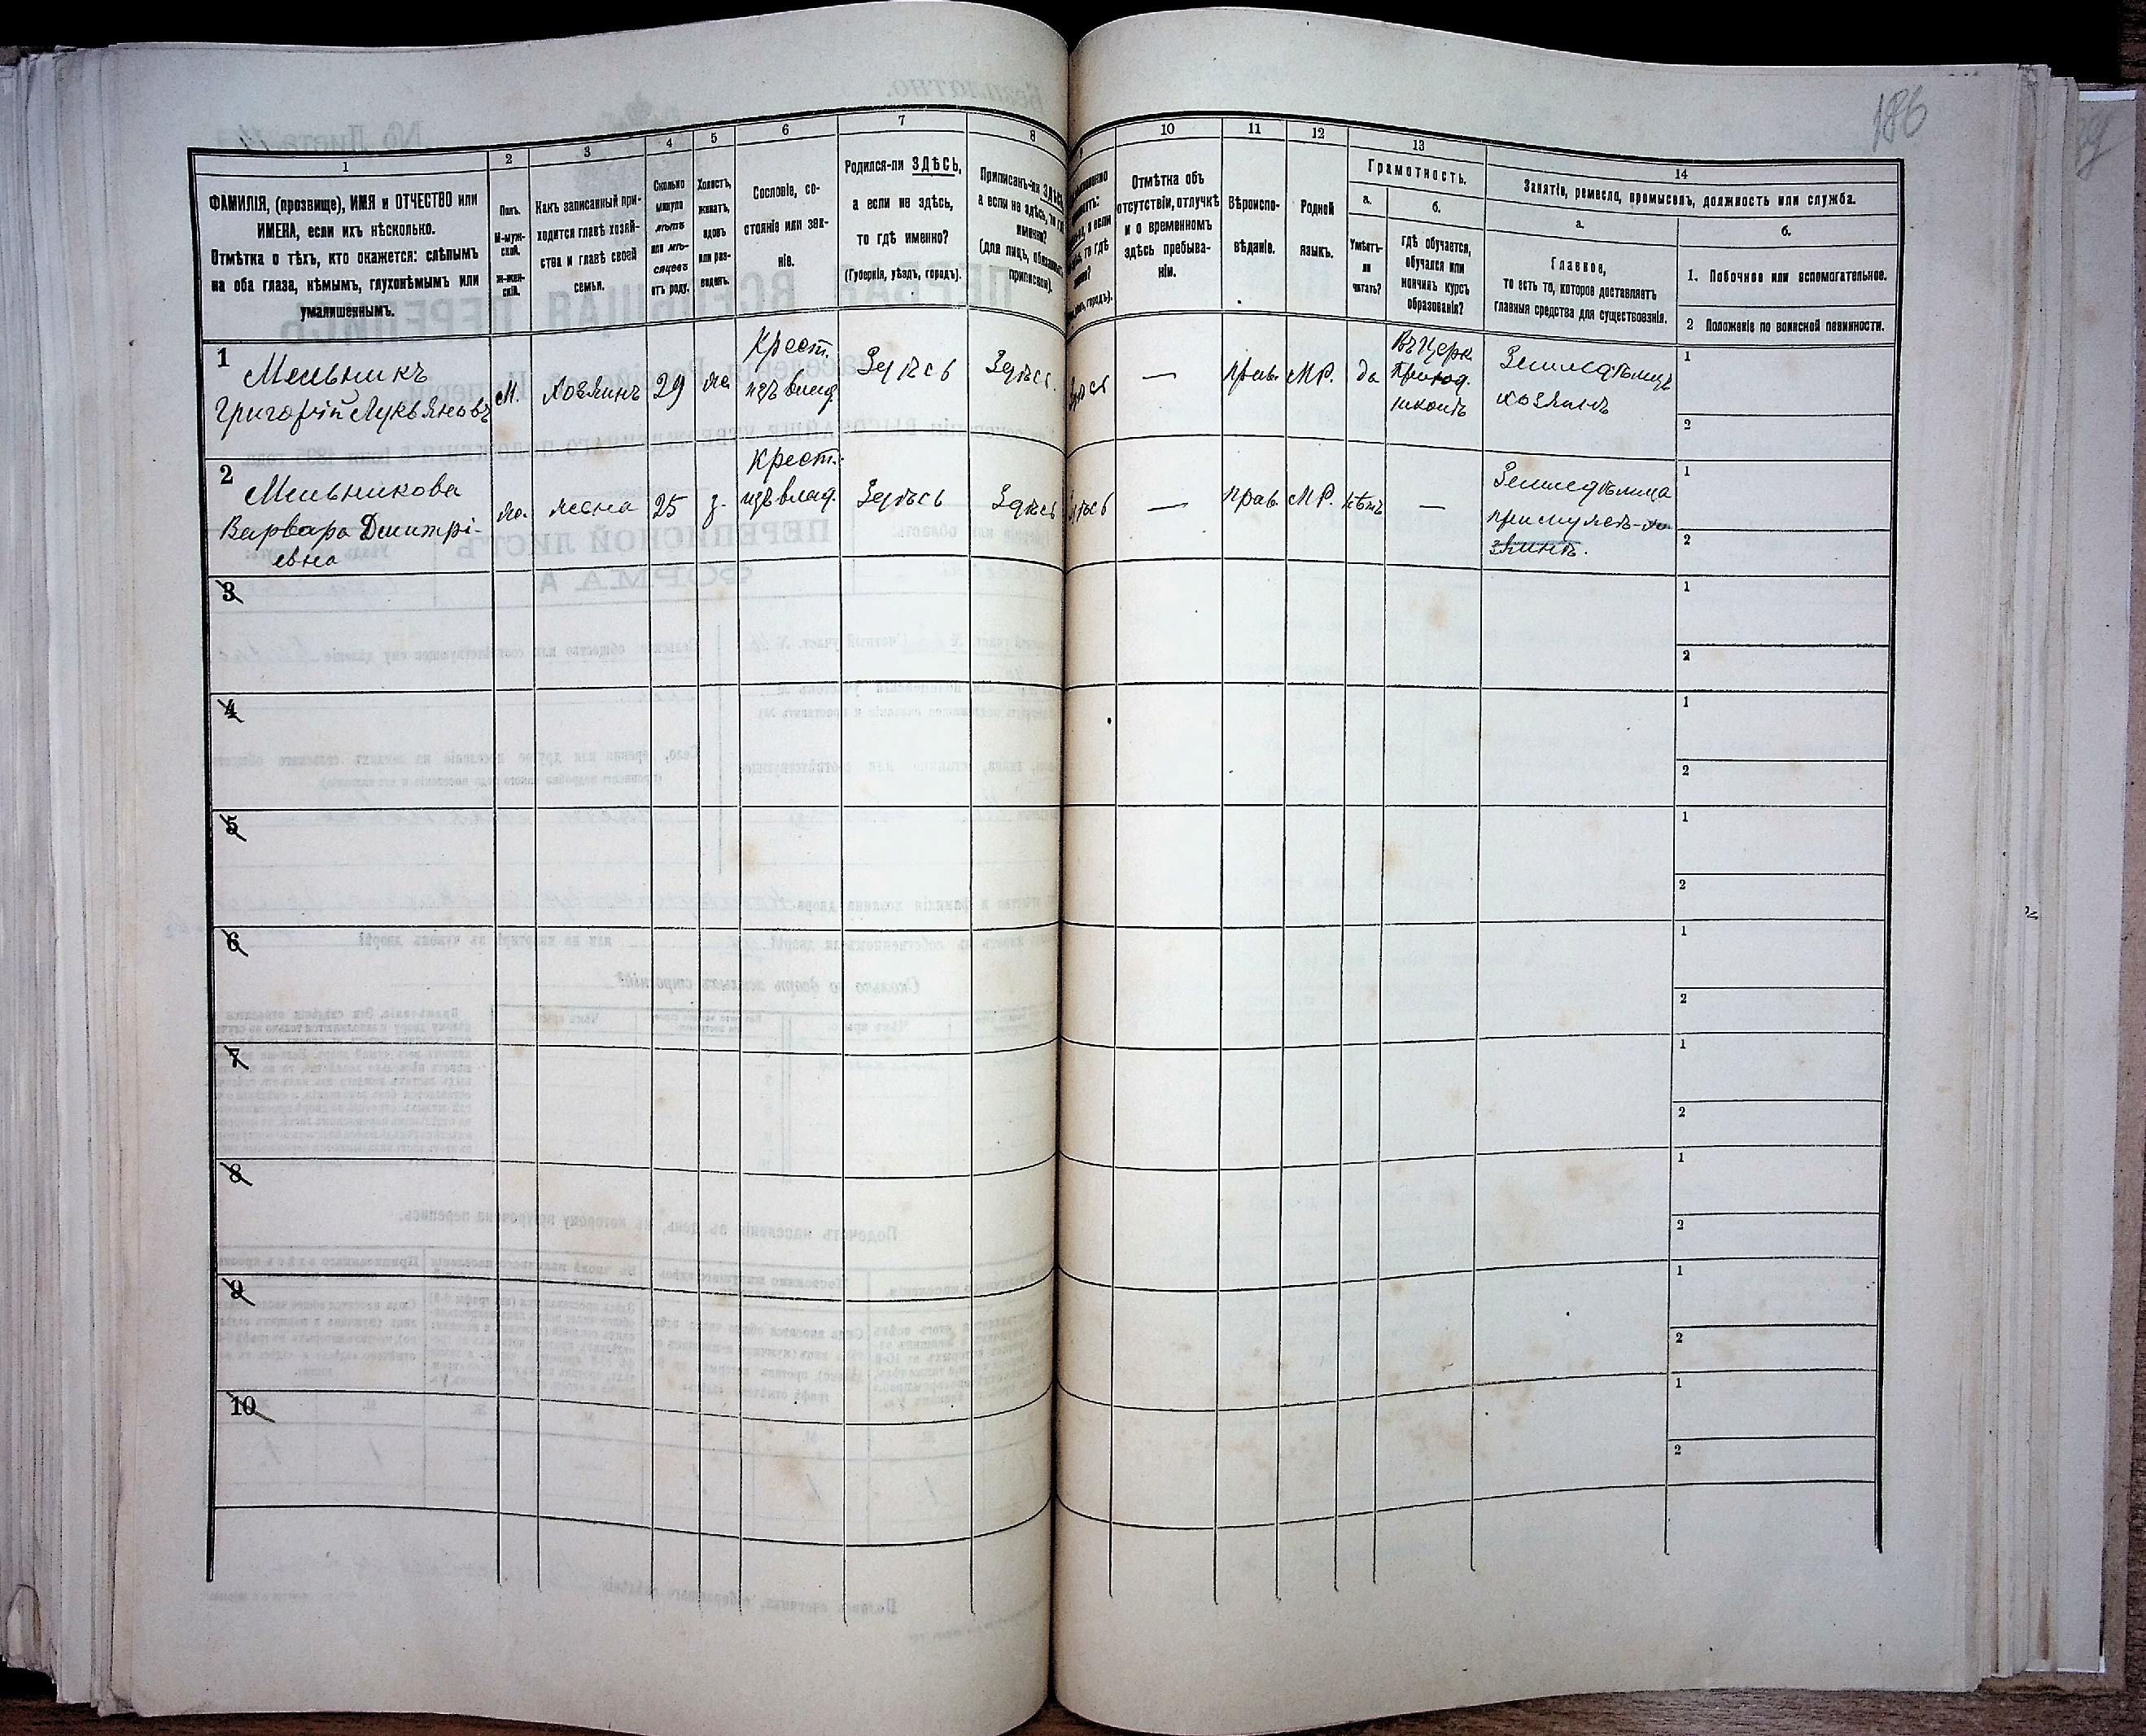 186
1
ФАМИЛІЯ, (прозвище), ИМЯ и ОТЧЕСТВО или
ИМЕНА, если ихъ нѣсколько.
Отмѣтка о тѣхъ, кто окажется: слѣпымъ
на оба глаза, нѣмымъ, глухонѣмымъ или
умалишеннымъ.
2
Полъ.
М-муж-
ской.
ж-жен-
скій.
3
Какъ записанный при-
ходится главѣ хозяй-
ства и главѣ своей
семьи.
4
Сколько
минуло
лѣтъ
или мѣ-
сяцевъ
отъ роду.
5
Холостъ,
женатъ,
вдовъ
или раз-
веденъ.
6
Сословіе, со-
стояніе или зва-
ніе.
7
Родился-ли ЗДѢСЬ,
а если не здѣсь,
то гдѣ именно?
(Губернія, уѣздъ, городъ).
8
Приписанъ-ли ЗДѢСЬ,
а если не здѣсь, то гдѣ
именно?
(для лицъ, обязанныхъ
припиской).
10
Отмѣтка объ
отсутствіи, отлучкѣ
и о временномъ
здѣсь пребыва-
ніи.
11
Вѣроиспо-
вѣданіе.
12
Родной
языкъ.
13
Грамотность.
а.
Умѣетъ-
ли
читать?
б.
гдѣ обучается,
обучался или
кончилъ курсъ
образованія?
14
Занятіе, ремесло, промыселъ, должность или служба.
а.
Главное,
то есть то, которое доставляетъ
главныя средства для существованія.
б.
1. Побочное или вспомогательное.
2 Положеніе по воинской повинности.
1
Мельникъ
Григорій Лукьяновъ
М.
Хозяинъ
29
же
Крест.
изъ влад.
Здѣсь
Здѣсь.
Здѣсь
—
прав.
МР.
да
Въ церк
приход.
школѣ
Земледѣлецъ
хозяинъ
1
2
2
Мельникова
Варвара Дмитрі-
евна
же.
жена
25
з.
Крест.
изъ влад.
Здѣсь
Здѣсь
Здѣсь
—
прав.
МР.
нѣтъ
—
Земледѣлица
при мужѣ-хо-
зяинѣ.
1
2
3
1
2
4
1
2
5
1
2
6
1
2
7
1
2
8
1
2
9
1
2
10
1
2